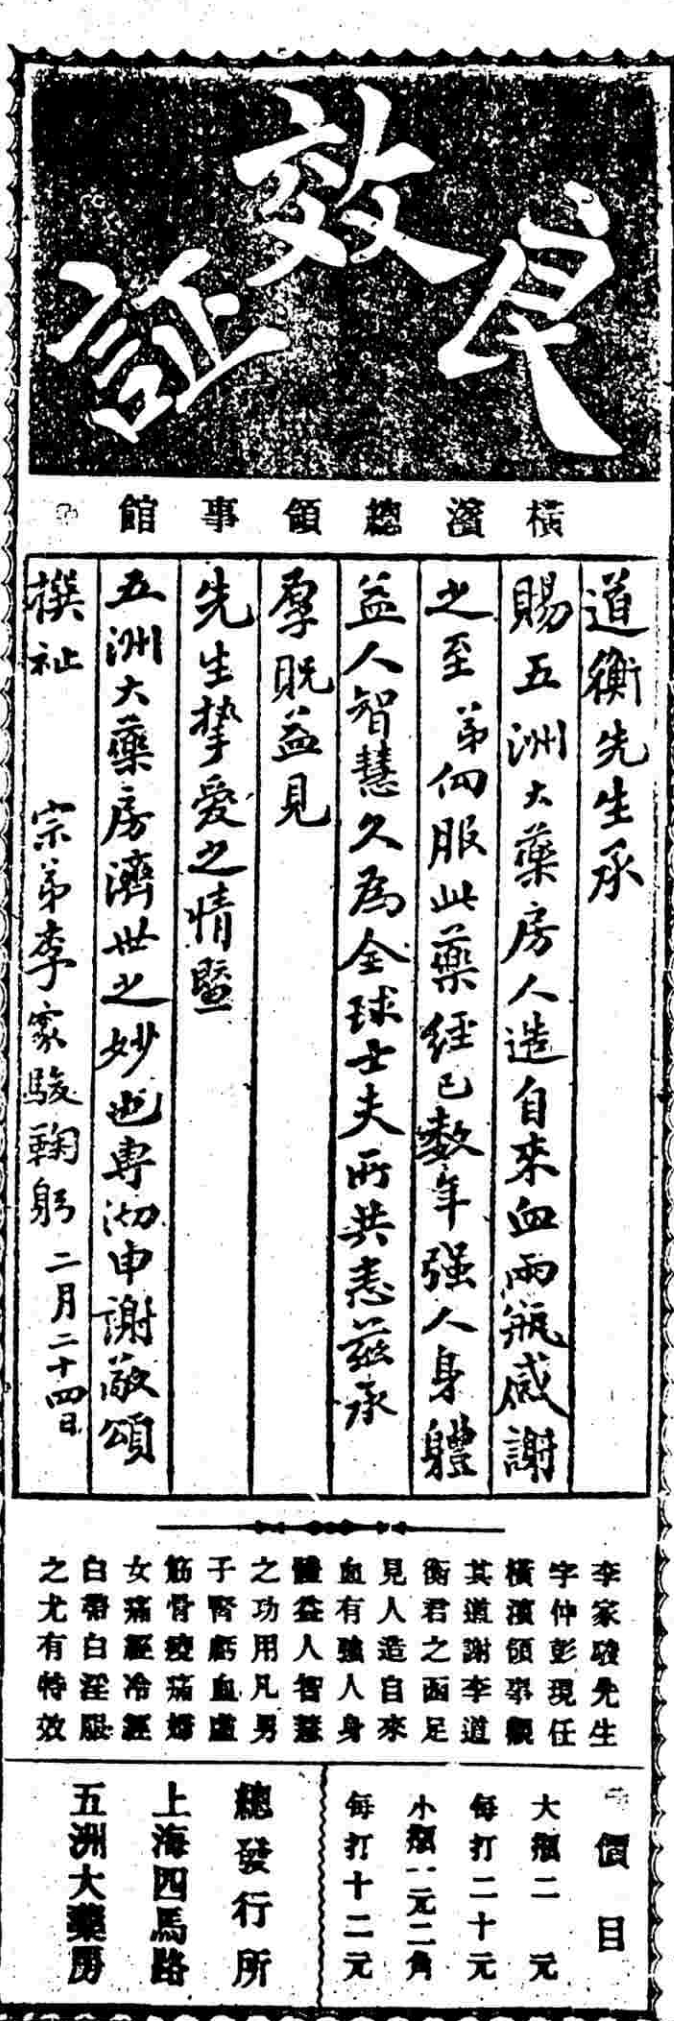 良效証
橫濱總領事館
道衡先生承
賜五洲大藥房人造自來血兩瓶感謝
之至弟向服此藥經已數年强人身體
益人智慧久為全球士夫所共悉茲承
厚貺益見
先生摯愛之情暨
五洲大藥房濟世之妙也専泐申謝敬頌
撰祉　宗弟李家駿鞠躬　二月二十四日
李家駿先生
字仲彭現任
橫濱領事觀
其道謝李道
衡君之函足
見人造自來
血有強人身
體益人智慧
之功用凡男
子腎虧血虛
筋骨痠痛婦
女痛經冷經
白帶白淫服
之尤有特效
價目
大瓶二元
每打二十元
小瓶一元二角
每打十二元
總發行所
上海四馬路
五洲大藥房